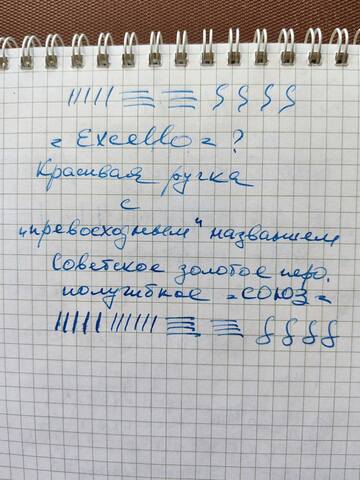 = Excello = ?
Красивая ручка
с
"превосходным" названием
Советское золотое перо.
полугибкое =СОЮЗ=